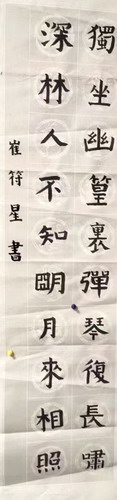 獨坐幽篁裏彈琴復長嘯
深林人不知明月來相照
崔符星書